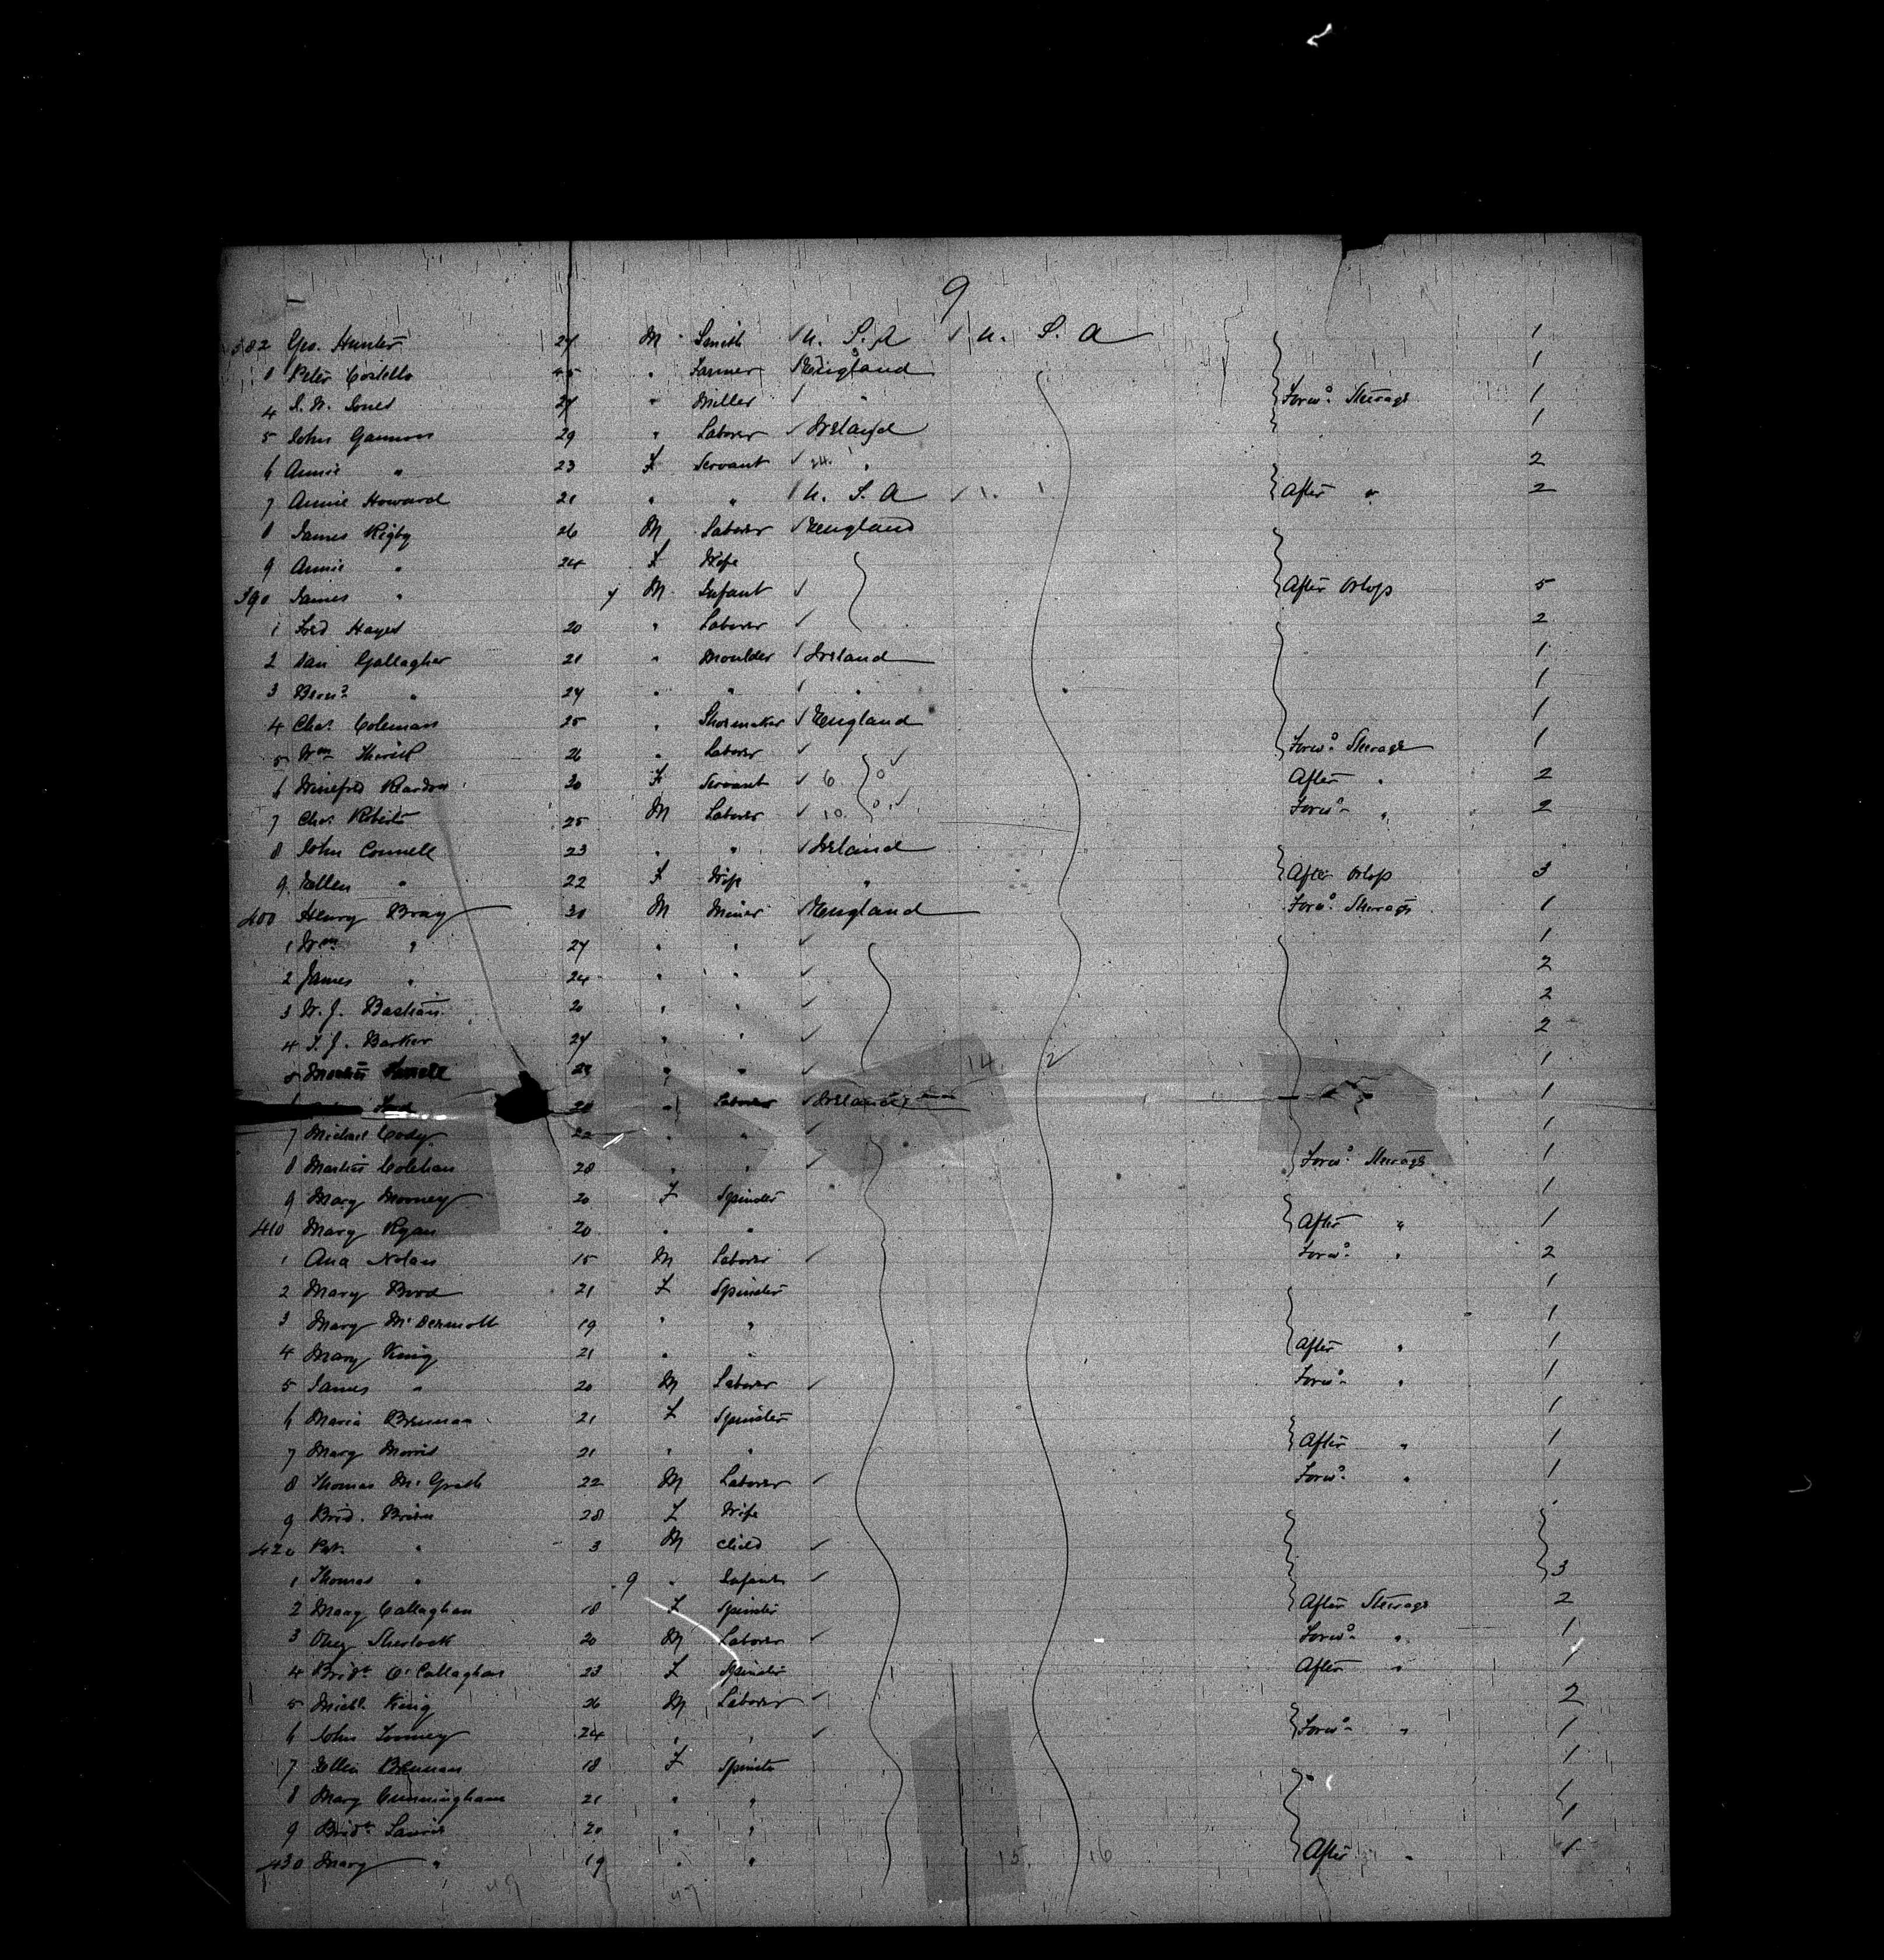 9
382 Geo. Hunter 24 M Smith U. S. A U. S. A 1
3 Peter Costello 45 " Farmer England 1
4 J. W. Jones 24 " Miller " Forwd. Steerage 1
5 John Gannon 29 " Laborer Ireland 1
6 Annie " 23 F Servant " 2
7 Annie Howard 21 " " U. S. A After " 2
8 James Rigby 26 M Laborer England
9 Annie " 24 F Wife
390 James " 7 M Infant After Orlop 5
1 Fred Hayes 20 " Laborer 2
2 Dan Gallagher 21 " Moulder Ireland 1
3 Bernd " 24 " " " 1
4 Chas. Coleman 25 " Shoemaker England 1
5 Wm 26 " Laborer Forwd. Steerage 1
6 Winefred Reardon 30 F Servant 6 0 After " 2
7 Chas. Roberts 25 M Laborer 10 0 Forwd. " 2
8 John Connell 23 " " Ireland
9 Ellen " 22 F Wife " After Orlop 3
400 Henry Bray 30 M Miner England Forwd. Steerage 1
1 Wm " 24 " " 1
2 James " 24 " " 2
3 W. J. Bastian 20 " " 2
4 T. J. Barker 24 " " 2
5 23 " " 14 2 1
" Laborer Ireland 1
7 Michael Cody 22 " " 1
8 Martin Colehan 28 " " Forwd. Steerage 1
9 Mary Mooney 20 F Spinster 1
410 Mary Ryan 20 " " After " 1
1 Ana Nolan 15 M Laborer Forwd. " 2
2 Mary Bood 21 F Spinster 1
3 Mary McDermott 19 " " 1
4 Mary King 21 " " After " 1
5 James " 20 M Laborer Forwd. " 1
6 Maria Brennan 21 F Spinster 1
7 Mary Morris 21 " " After " 1
8 Thomas McGrath 22 M Laborer Forwd. " 1
9 Brid. Brien 28 F Wife
420 Pat. " 3 M Child
1 Thomas " 9 " Infant 3
2 Mary Callaghan 18 F Spinster After Steerage 2
3 Sherlock 20 M Laborer Forwd. " 1
4 Bridt. O'Callaghan 23 F Spinster After " 1
5 Michl. King 26 M Laborer 2
6 John Toomey 24 " " Forwd. " 1
7 Ellen Brennan 18 F Spinster 1
8 Mary Cunningham 21 " " 1
9 Bridt. 20 " " 1
430 Mary " 19 " " 15 16 After " 1
49 47